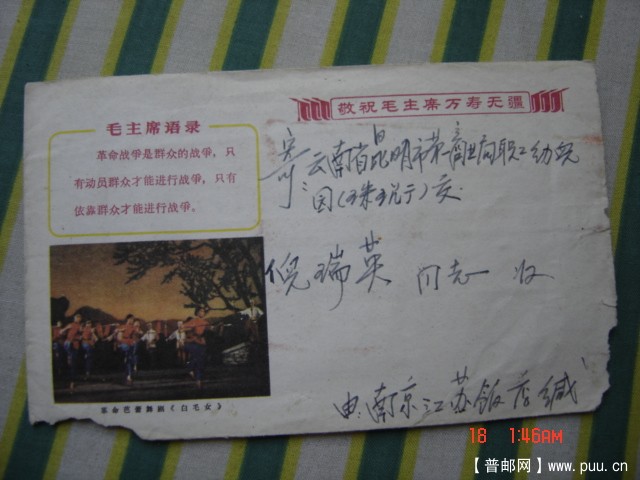 敬祝毛主席万寿无疆
毛主席语录
革命战争是群众的战争，只
有动员群众才能进行战争，只有
依靠群众才能进行战争。
寄云南省昆明市第一商业局职工幼儿
园
交
倪瑞英 同志 收
由南京江苏饭店缄
革命芭蕾舞剧《白毛女》
18 1:46AM
【普邮网】www.puu.cn